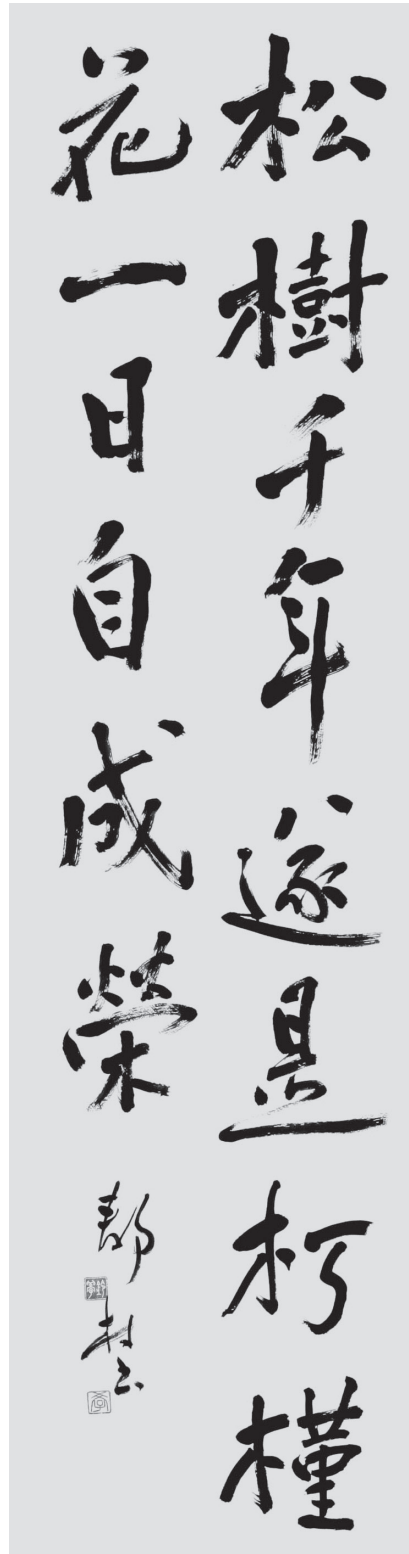 松樹千年遂是朽槿
花一日自成榮
静村書